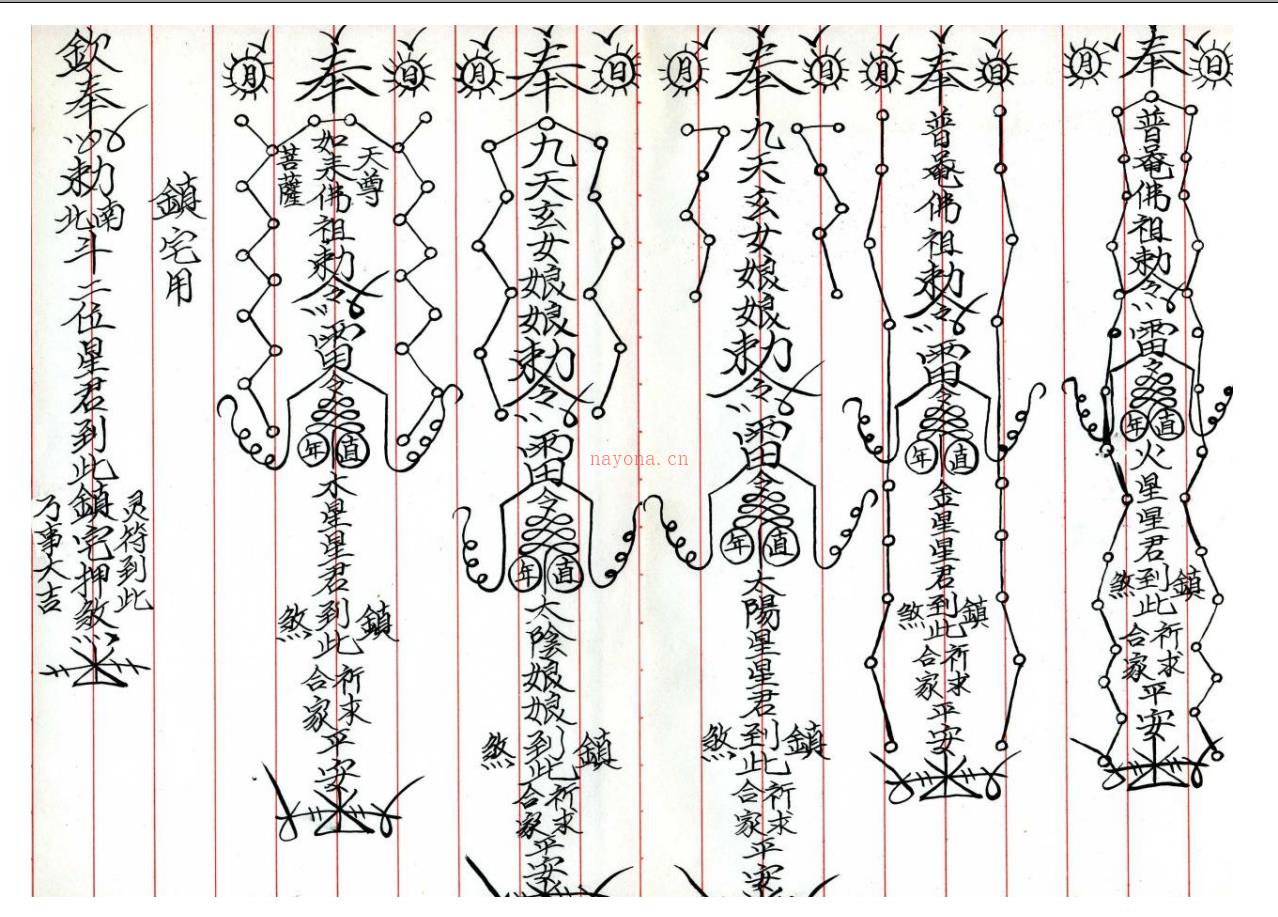 奉
日 月
普菴佛祖勅令
雷令
直年
火星星君到此
鎮煞
祈求合家平安
奉
日 月
普菴佛祖勅令
雷令
直年
金星星君到此
鎮煞
祈求合家平安
奉
日 月
九天玄女娘娘勅令
雷令
直年
太陽星星君到此
鎮煞
祈求合家平安
奉
日 月
九天玄女娘娘勅令
雷令
直年
太陰娘娘到此
鎮煞
祈求合家平安
奉
日 月
天尊
如来佛祖勅令
菩薩
雷令
直年
水星星君到此
鎮煞
祈求合家平安
鎮宅用
欽奉勅南北斗二位星君到此鎮宅押煞
灵符到此
万事大吉
nayona.cn